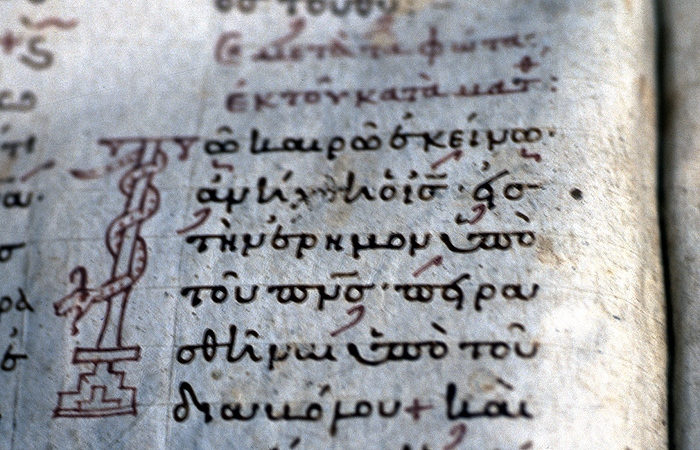 μετὰ τὰ φῶτα:
ἐκ τοῦ κατὰ ματθ:
Τῶ καιρῶ ἐκείνω·
ἀνήχθη ὁ ἰς̅ εἰσ
τὴν ἔρημον ὑπὸ
τοῦ πν̅σ· πειρα
σθῆναι ὑπὸ τοῦ
διαβόλου + καὶ